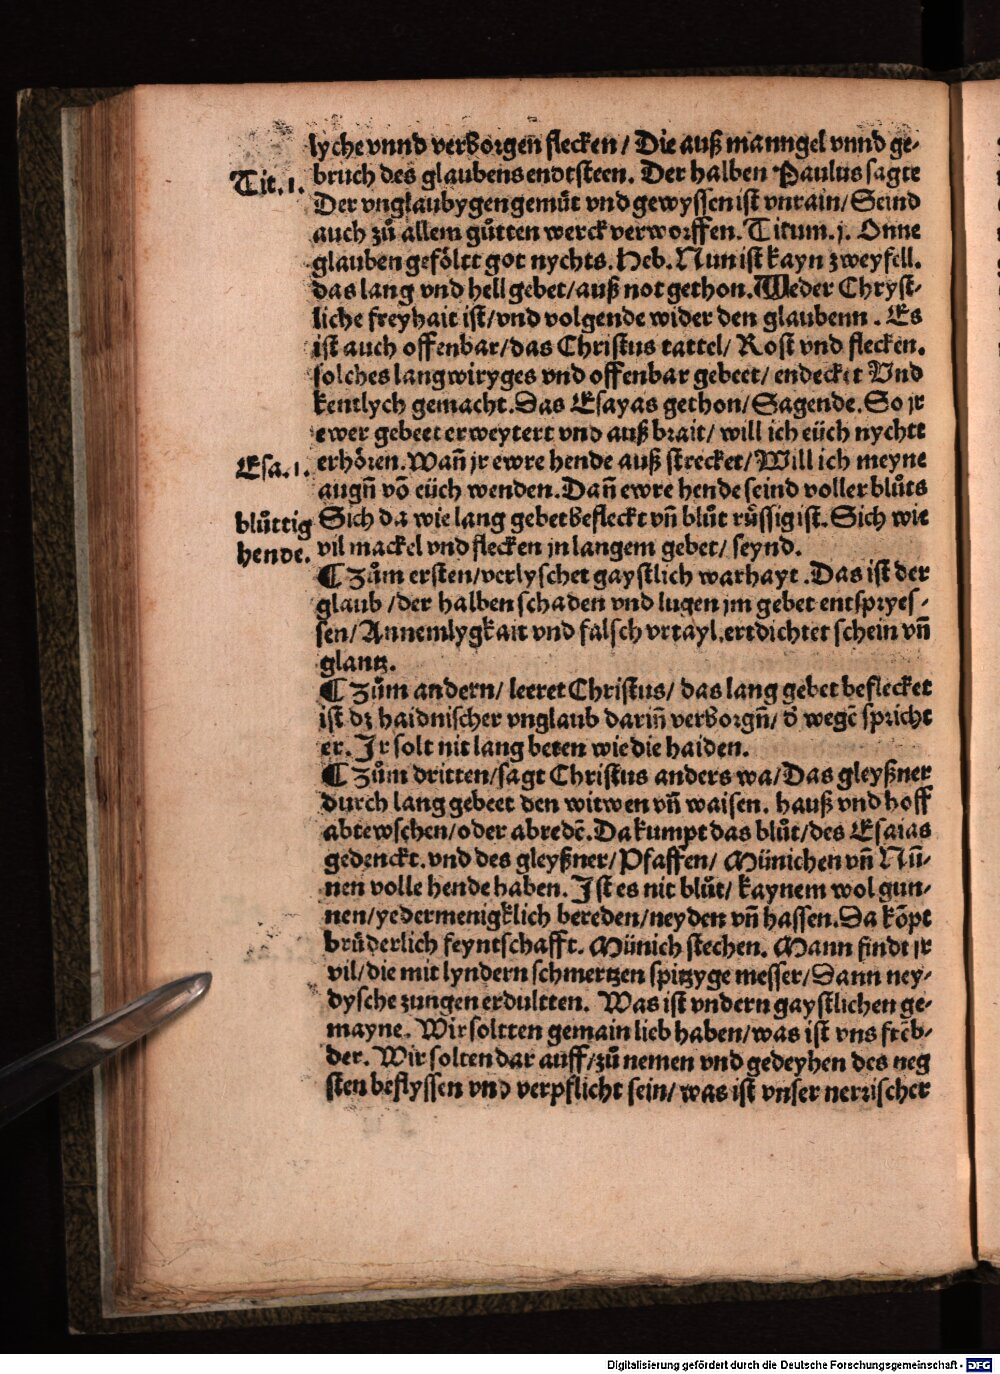 lyche vnnd verborgen flecken / Die auß manngel vnnd ge-
Tit. 1.
bruch des glaubens endtsteen. Der halben Paulus sagte
Der vnglaubygen gemuͤt vnd gewyssen ist vnrain / Seind
auch zuͦ allem guͦtten werck verworffen. Titum. j. Onne
glauben gefoͤltt got nychts. Heb. Nun ist kayn zweyfell.
das lang vnd hell gebet / auß not gethon. Weder Chryst-
liche freyhait ist / vnd volgende wider den glaubenn. Es
ist auch offenbar / das Christus tattel / Rost vnd flecken.
solches langwiryges vnd offenbar gebeet / endecket Vnd
kentlych gemacht. Das Esayas gethon / Sagende. So jr
ewer gebeet erweytert vnd auß brait / will ich eüch nychtt
Esa. 1.
erhoͤren. Wañ jr ewre hende auß strecket / Will ich meyne
augñ võ eüch wenden. Dañ ewre hende seind voller bluͦts
bluͦttig
hende.
Sich da wie lang gebet befleckt vñ bluͦt ruͤssig ist. Sich wie
vil mackel vnd flecken jn langem gebet / seynd.
¶ Zuͦm ersten / verlyschet gaystlich warhayt. Das ist der
glaub / der halben schaden vnd lugen jm gebet entspryes-
sen / Annemlygkait vnd falsch vrtayl. ertdichtet schein vñ
glantz.
¶ Zuͦm andern / leeret Christus / das lang gebet beflecket
ist dz haidnischer vnglaub dariñ verborgñ / d' wegẽ spricht
er. Jr solt nit lang beten wie die haiden.
¶ Zuͦm dritten / sagt Christus anders wa / Das gleyßner
durch lang gebeet den witwen vñ waisen. hauß vnd hoff
abtewschen / oder abredẽ. Da kumpt das bluͦt / des Esaias
gedenckt. vnd des gleyßner / Pfaffen / Münichen vñ Nũ-
nen volle hende haben. Ist es nit bluͦt / kaynem wol gun-
nen / yedermenigklich bereden / neyden vñ hassen. Da kõpt
bruͤderlich feyntschafft. Münich stechen. Mann findt jr
vil / die mit lyndern schmertzen spitzyge messer / Dann ney-
dysche zungen erdultten. Was ist vndern gaystlichen ge-
mayne. Wir soltten gemain lieb haben / was ist vns frẽb-
der. Wir solten dar auff / zuͦ nemen vnd gedeyhen des neg
sten beflyssen vnd verpflicht sein / was ist vnser nerrischer
Digitalisierung gefördert durch die Deutsche Forschungsgemeinschaft - DFG